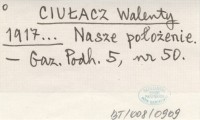 CIUŁACZ Walenty
1917... Nasze położenie.
— Gaz. Podh. 5, nr 50.
BT/008/0909